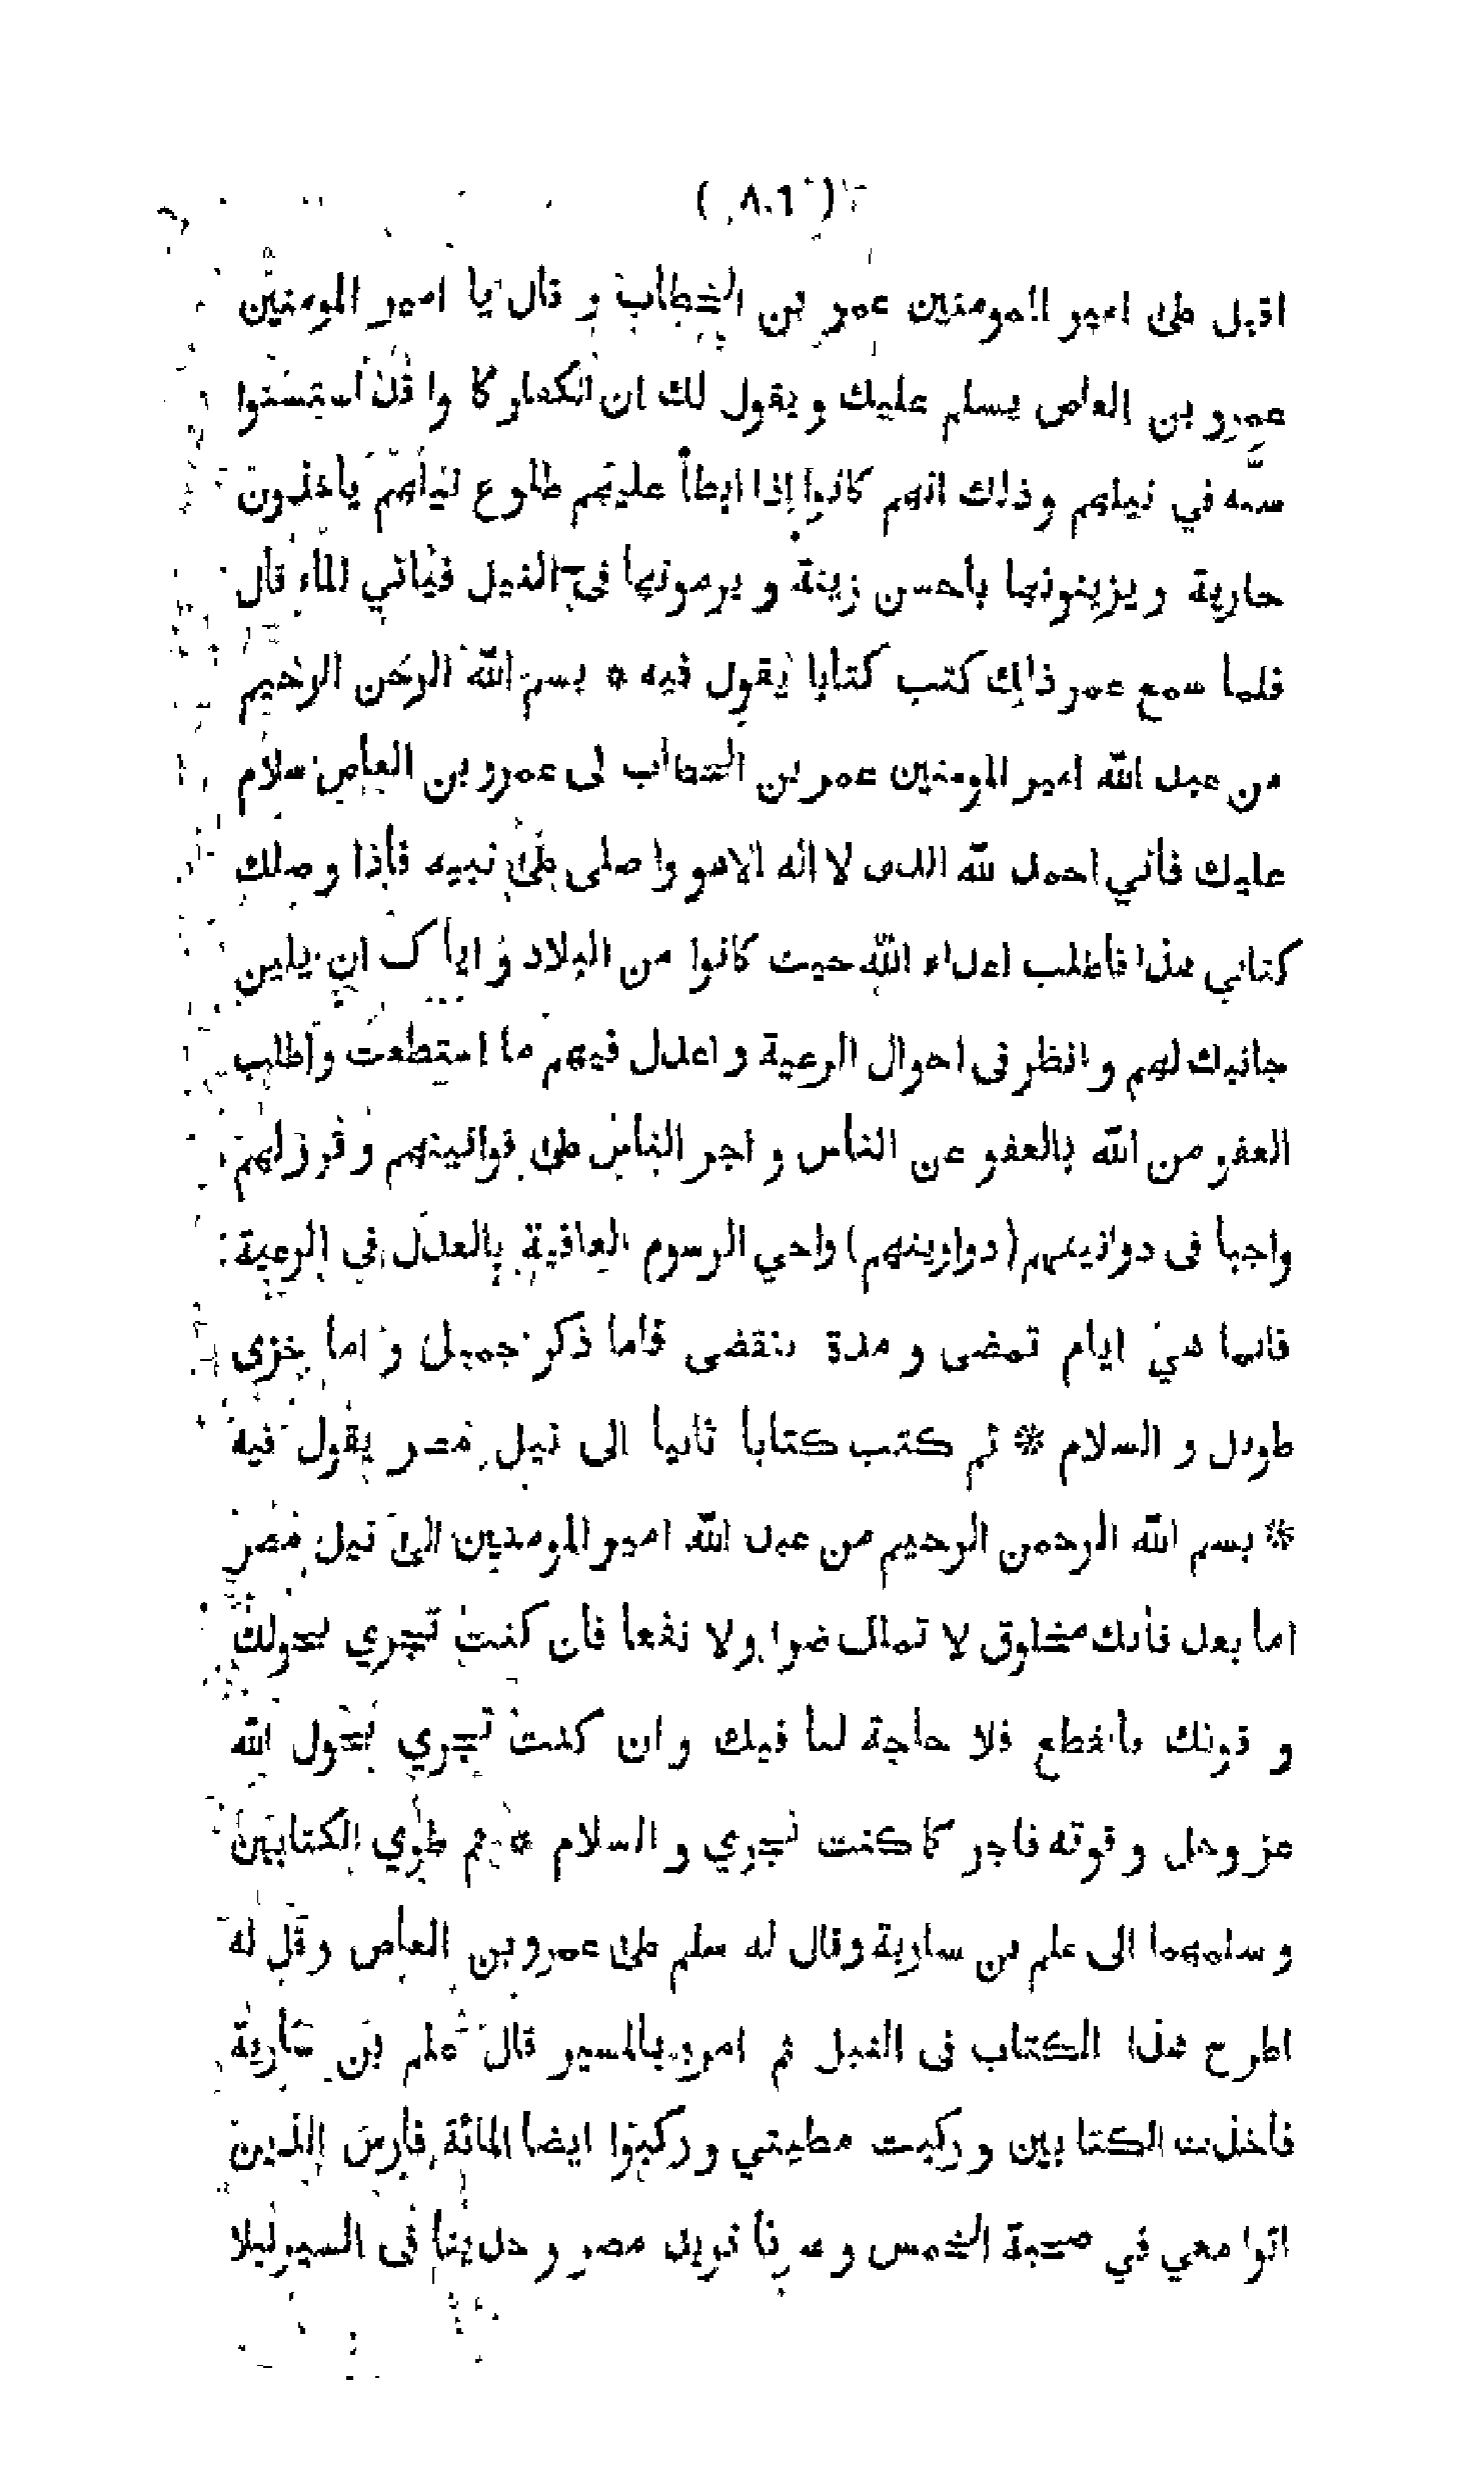 ( ٨٠٦ )
اقبل على امير المومنين عمر بن الخطاب و قال يا امير المومنين
عمرو بن العاص يسلم عليك و يقول لك ان الكفار كا وا قد استسنوا
سنه في نيلهم و ذلك انهم كانوا إذا ابطأ عليهم طلوع نيلهم يأخذون
جارية و يزينونها بأحسن زينة و يرمونها فى النيل فيأتي الماء قال
فلما سمع عمر ذلك كتب كتابا يقول فيه * بسم الله الرحمن الرحيم
من عبد الله امير المومنين عمر بن الخطاب لى عمرو بن العاص سلام
عليك فأني احمد لله الذى لا اله الا هو وا صلى على نبيه فأذا وصلك
كتابي هذا فاطلب اعداء الله حيث كانوا من البلاد و اياك ان يلين
جانبك لهم و انظر فى احوال الرعية و اعدل فيهم ما استطعت واطلب
العفو من الله بالعفو عن الناس و اجر الناس على قوانينهم و قرر لهم
واجبا فى دوانينهم (دواوينهم) واحي الرسوم العافية بالعدل في الرعية
فانما هي ايام تمضى و مدة تنقضى فاما ذكر جميل و اما خزى
طويل و السلام * ثم كتب كتابا ثانيا الى نيل مصر يقول فيه
* بسم الله الرحمن الرحيم من عبد الله امير المومنين الى نيل مصر
اما بعد فانك مخلوق لا تملك ضرا ولا نفعا فان كنت تجري بحولك
و قوتك فانقطع فلا حاجة لنا فيك و ان كنت تجري بحول الله
عز وجل و قوته فاجر كما كنت تجري و السلام * ثم طوي الكتابين
و سلمهما الى علم بن سارية و قال له سلم على عمرو بن العاص و قل له
اطرح هذا الكتاب فى النيل ثم امره بالمسير قال علم بن سارية
فأخذت الكتا بين و ركبت مطيتي و ركبوا ايضا المائة فارس الذين
اتوا معي في صحبة الخمس و سرنا نريد مصر و جدينا فى السير ليلا